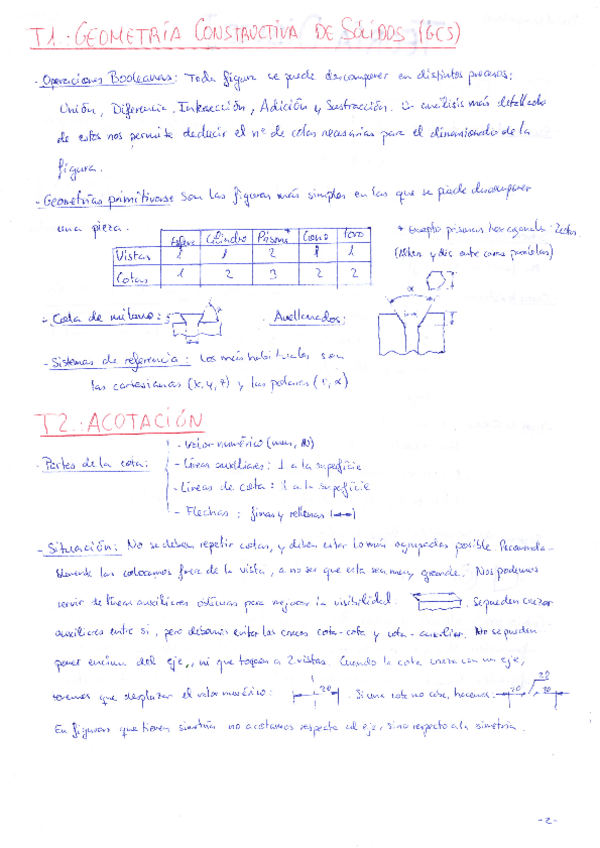 T1.- GEOMETRÍA CONSTRUCTIVA DE SÓLIDOS (GCS)
- Operaciones Booleanas: Toda figura se puede descomponer en distintos procesos:
Unión, Diferencia, Intersección, Adición y Sustracción. Un análisis más detallado
de estos nos permite deducir el nº de cotas necesarias para el dimensionado de la
figura.
- Geometrías primitivas: Son las figuras más simples en las que se puede descomponer
una pieza.
Esfera Cilindro Prisma* Cono Toro
Vistas 1 2 1 1
Cotas 1 2 3 2 2
* Excepto prismas hexagonales: 2 cotas
(Altura y dis entre caras paralelas)
- Cota de milano:
- Avellanados:
α
- Sistemas de referencia: Los más habituales son
las cartesianas (x, y, z) y las polares (r, α)
T2.- ACOTACIÓN
- Partes de la cota:
- Valor numérico (mm, )
- Líneas auxiliares: ⊥ a la superficie
- Líneas de cota: a la superficie
- Flechas: finas y rellenas
- Situación: No se deben repetir cotas, y deben estar lo más agrupadas posible.
las colocamos fuera de la vista, a no ser que esta sea muy grande. Nos podemos
servir de líneas auxiliares oblicuas para mejorar la visibilidad. Se pueden cruzar
auxiliares entre sí, pero debemos evitar los cruces cota-cota y cota-auxiliar. No se pueden
poner encima del eje, ni que toquen a 2 vistas. Cuando la cota cruza con un eje,
tenemos que desplazar el valor numérico: 20 . Si una cota no cabe, hacemos: 20 20 20
En figuras que tienen simetría no acotamos respecto al eje, sino respecto a la simetría.
-2-